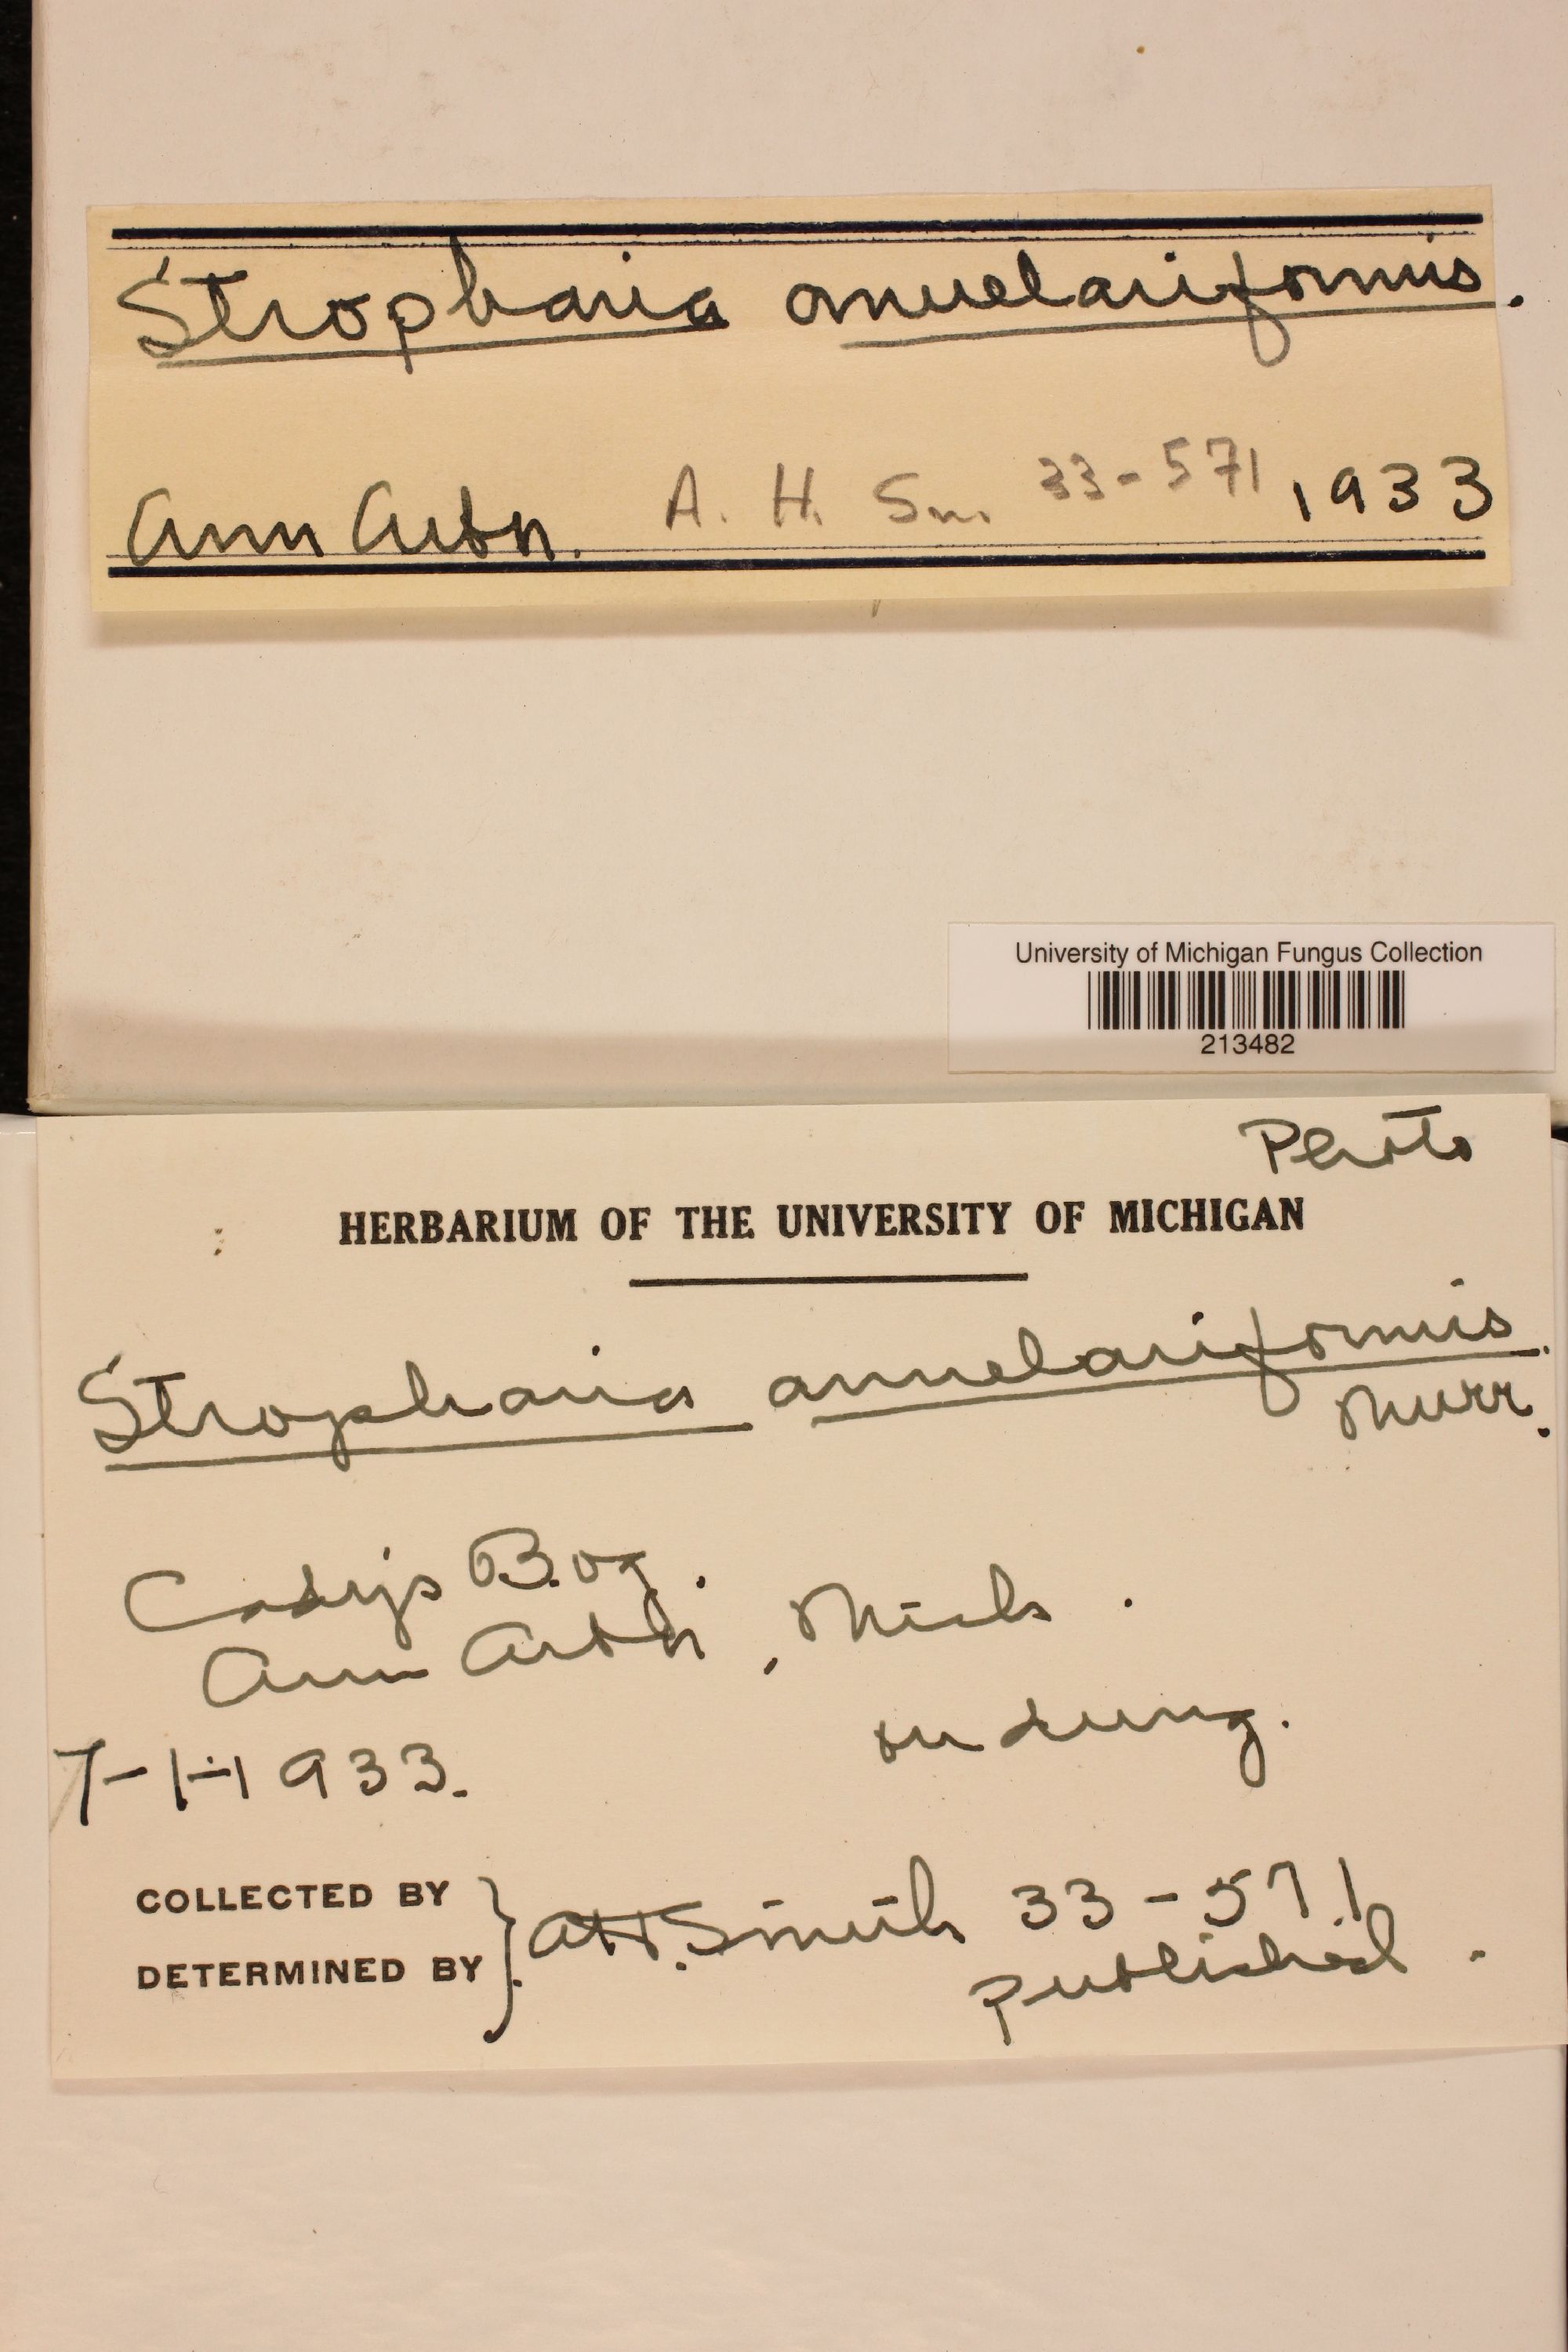 Stropharia annelariiformis.
Ann Arbor. A. H. Sm. 33-571, 1933
University of Michigan Fungus Collection
213482
Photo
HERBARIUM OF THE UNIVERSITY OF MICHIGAN
Stropharia annelariiformis.
Murr.
Cady's Bog.
Ann Arbor, Mich.
on dung.
7-1-1933.
COLLECTED BY
DETERMINED BY } AH. Smith 33-571
published.